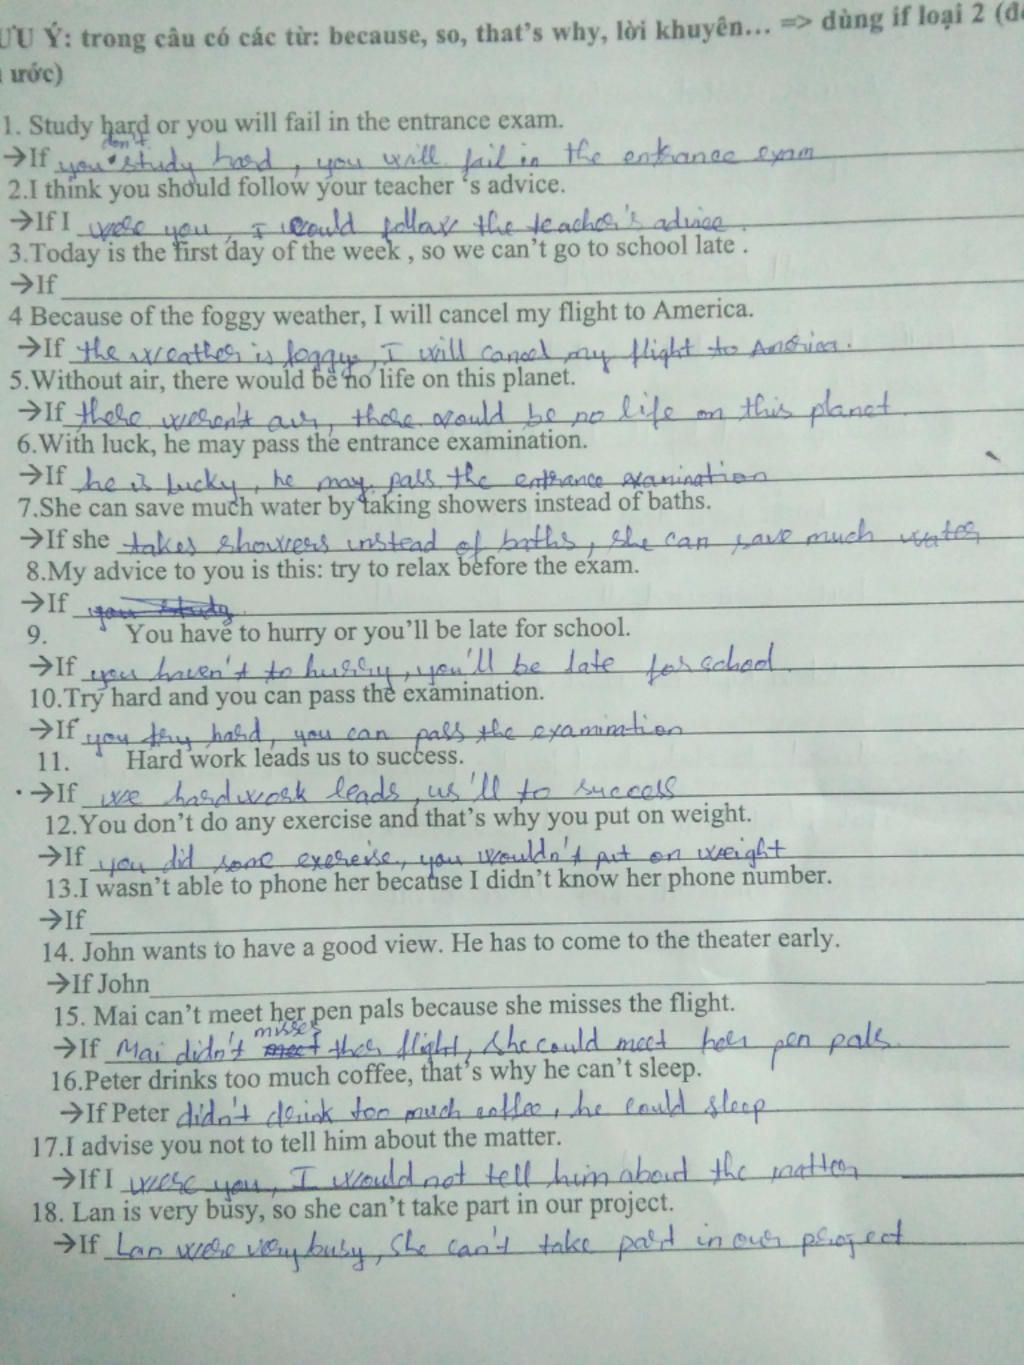 ƯU Ý: trong câu có các từ: because, so, that's why, lời khuyên... => dùng if loại 2 (đ
ước)
1. Study hard or you will fail in the entrance exam.
→If you don't study hard, you will fail in the entrance exam
2.I think you should follow your teacher 's advice.
→If I were you, I would follow the teacher's advice.
3.Today is the first day of the week , so we can't go to school late .
→If
4 Because of the foggy weather, I will cancel my flight to America.
→If the weather is foggy, I will cancel my flight to
5.Without air, there would be no life on this planet.
→If there weren't air, there would be no life on this planet
6.With luck, he may pass the entrance examination.
→If he is lucky, he may pass the entrance examination
7.She can save much water by taking showers instead of baths.
→If she takes showers instead of baths, she can save much water
8.My advice to you is this: try to relax before the exam.
→If you study
9. You have to hurry or you'll be late for school.
→If you haven't to hurry, you'll be late for school.
10.Try hard and you can pass the examination.
→If you try hard, you can pass the examination
11. Hard work leads us to success.
→If we hardwork leads, us'll to success
12.You don't do any exercise and that's why you put on weight.
→If you did some exercise, you wouldn't put on weight
13.I wasn't able to phone her because I didn't know her phone number.
→If
14. John wants to have a good view. He has to come to the theater early.
→If John
15. Mai can't meet her pen pals because she misses the flight.
→If Mai didn't misses meet ther flight, she could meet her pen pals.
16.Peter drinks too much coffee, that's why he can't sleep.
→If Peter didn't drink too much coffee, he could sleep
17.I advise you not to tell him about the matter.
→If I were you, I would not tell him about the matter
18. Lan is very busy, so she can't take part in our project.
→If Lan were very busy, she can't take part in our project